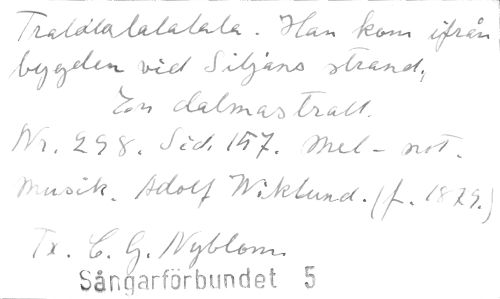 Tralalalalalala. Han kom ifrån
bygden vid Siljans strand,
En dalmastrall.
Nr. 298. Sid. 157. Mel-not.
Musik. Adolf Wiklund. (f. 1879.)
Tx. C. G. Nyblom.
Sångarförbundet 5